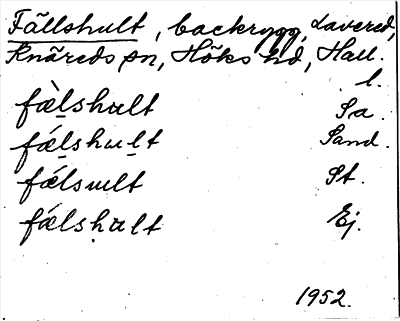 Fällshult, backrygg, Lavered,
Knäreds sn, Höks hd, Hall.
l.
fæ̀l̠shult Sa.
fǽl̠shul̠t Sand.
fǽlsult St.
fǽlshult Ej.
1952.